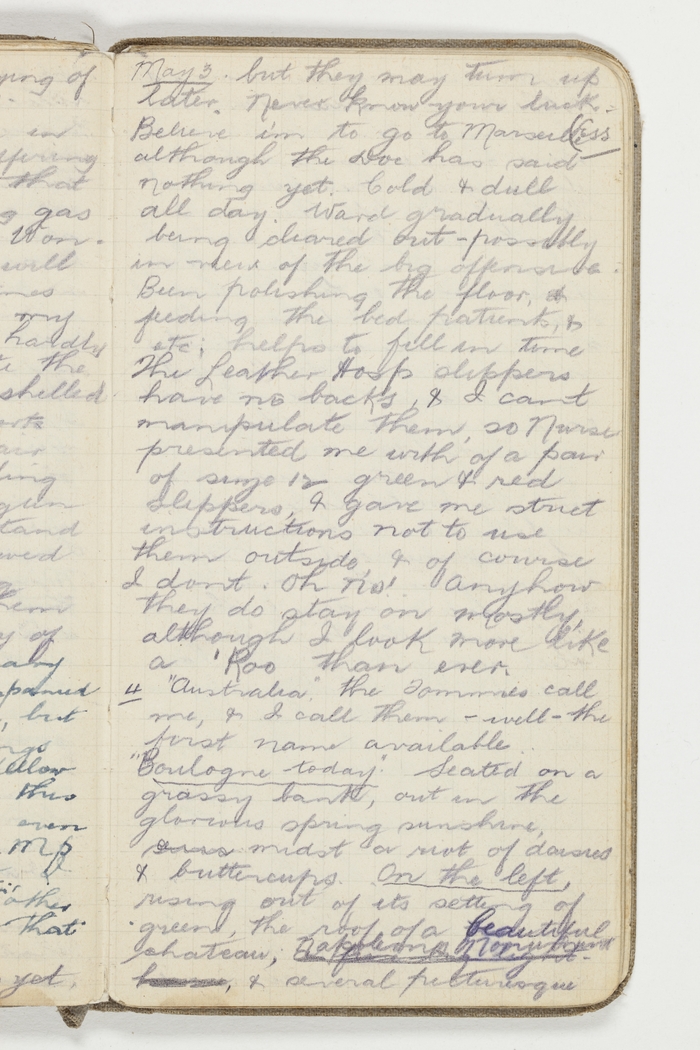 ping of
in
that
gas
Won-
will
my
hardly
the
shelled
gun
stand
them
of
but
allow
thus
even
M.P.
other
that
yet,
May 3. but they may turn up
later. Never know your luck.
Believe im to go to Marseilles
although the Doc has said
nothing yet. Cold & dull
all day. Ward gradually
being cleared out - possibly
in view of the big offensive.
Been polishing the floor, &
feeding the bed patients, &
etc; helps to fill in time
The leather Hosp slippers
have no backs, & I cant
manipulate them, so Nurse
presented me with of a pair
of size 12 green & red
slippers, & gave me strict
instructions not to use
them outside, & of course
I dont. Oh no! Anyhow
they do stay on mostly,
although I look more like
a 'Roo than ever.
4 "Australia" the Tommies call
me, & I call them - well - the
first name available.
"Boulogne today". Seated on a
grassy bank, out in the
glorious spring sunshine,
midst a riot of daisies
& buttercups. On the left,
rising out of its setting of
green, the roof of a beautiful
chateau, Napoleons Monument
& several picturesque